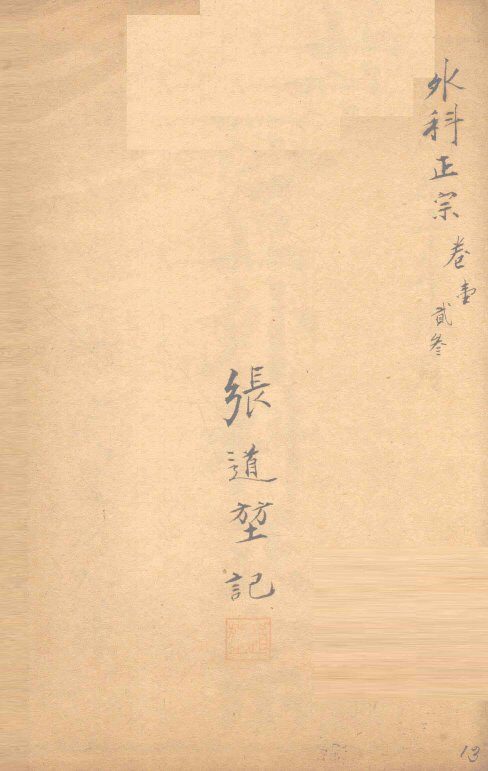 外科正宗 卷壹
貳叁
張道堃記
13